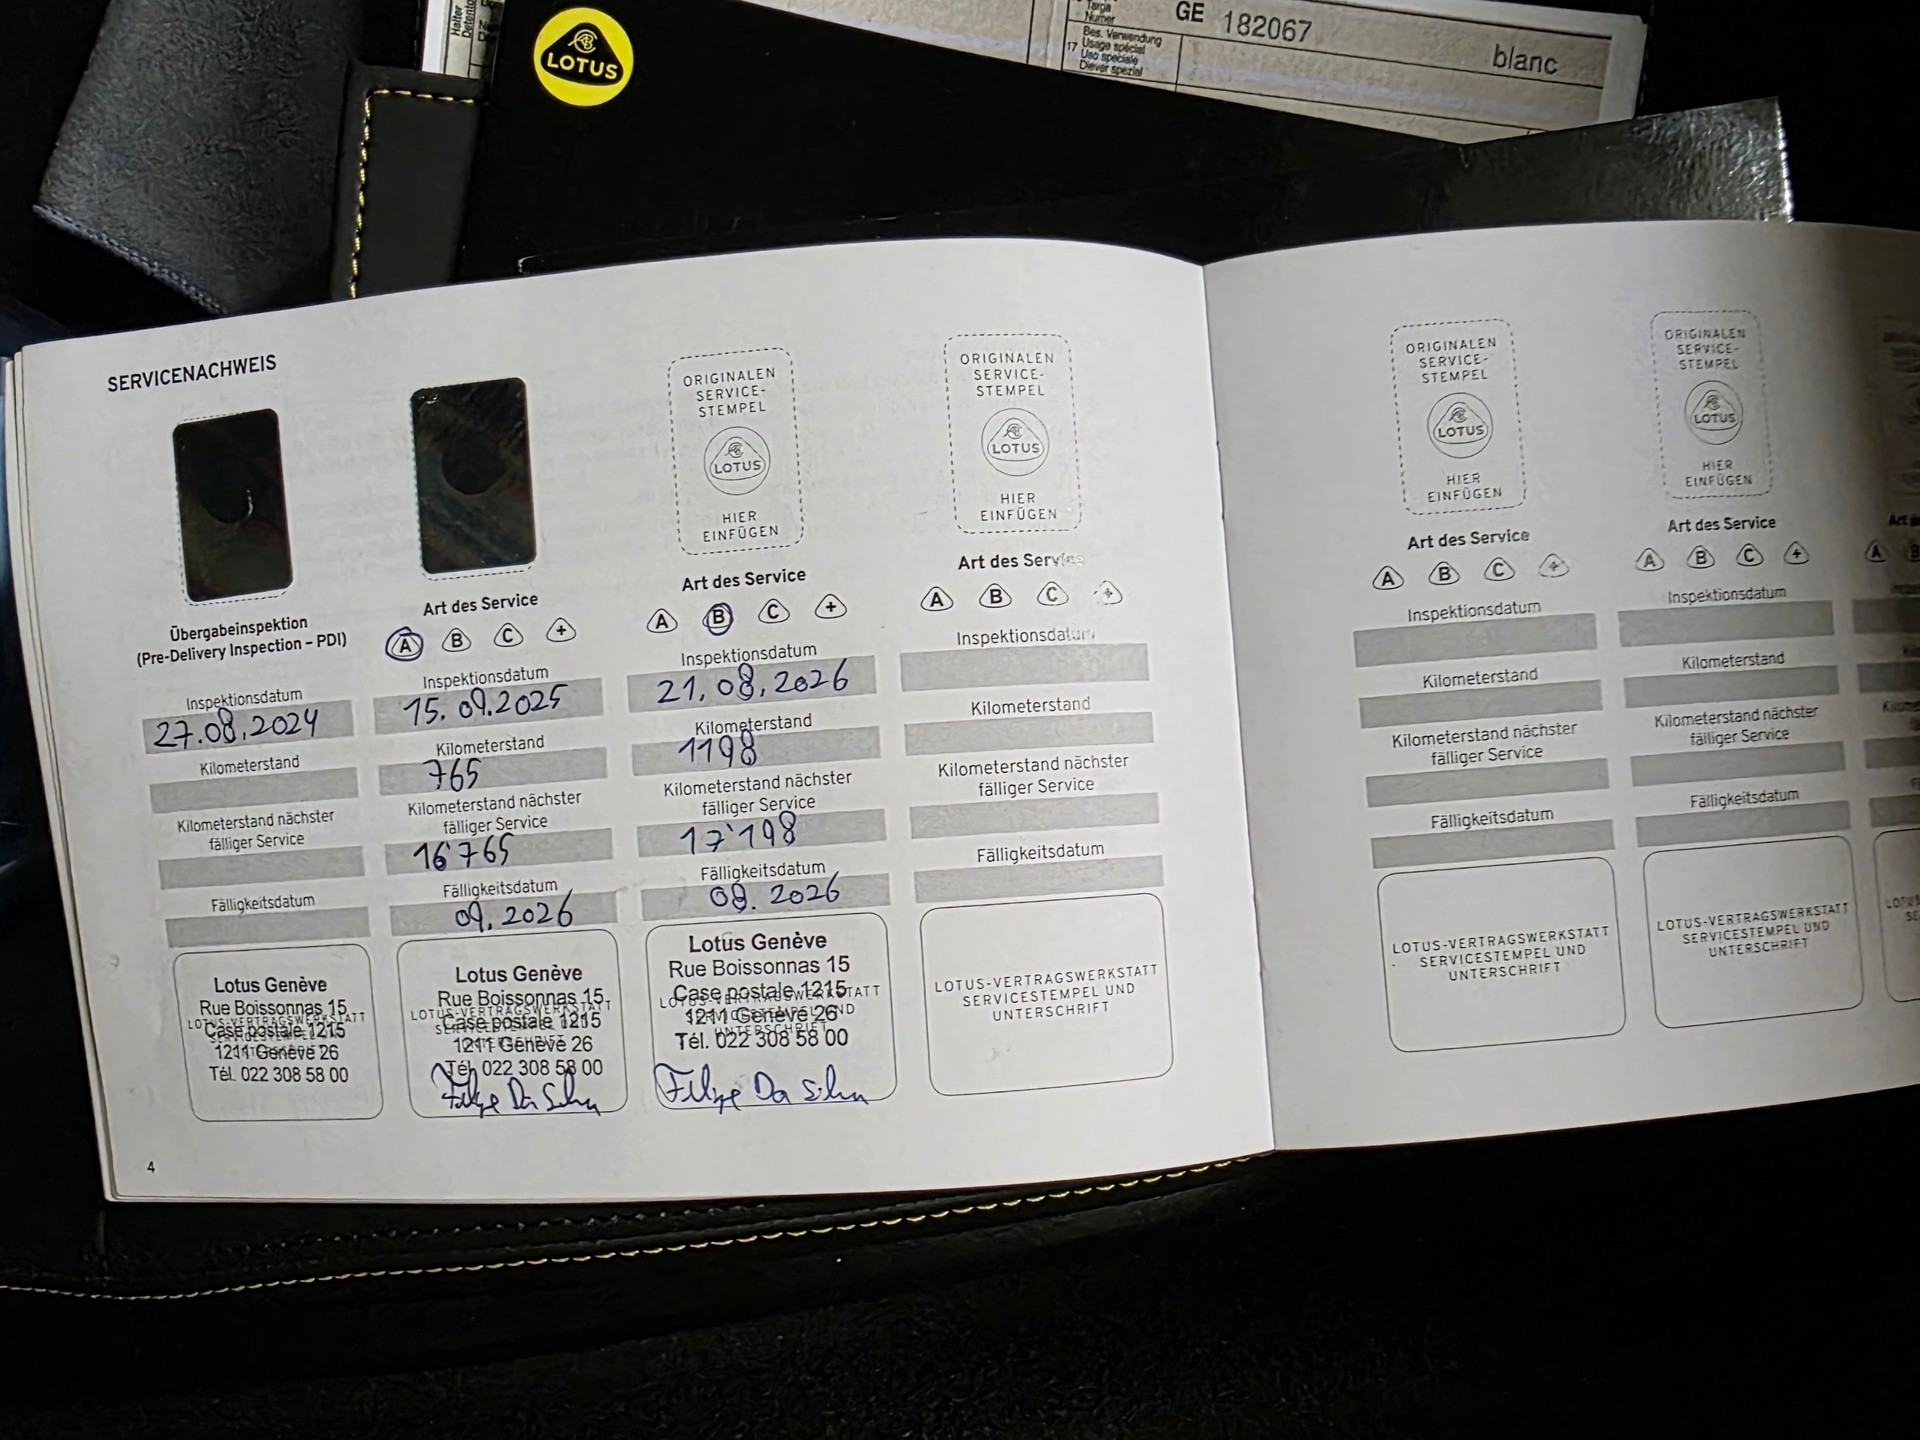 LOTUS
Halter
Targa
Numer
GE 182067
17
Bes. Verwendung
Usage spécial
Uso speciale
Diever spezial
blanc
SERVICENACHWEIS
Übergabeinspektion
(Pre-Delivery Inspection – PDI)
Inspektionsdatum
27.08.2024
Kilometerstand
Kilometerstand nächster
fälliger Service
Fälligkeitsdatum
Lotus Genève
Rue Boissonnas 15
LOTUS-VERTRAGSWERKSTATT
Case postale 1215
1211 Genève 26
Tél. 022 308 58 00
Art des Service
A B C +
Inspektionsdatum
15.09.2025
Kilometerstand
765
Kilometerstand nächster
fälliger Service
16'765
Fälligkeitsdatum
09.2026
Lotus Genève
Rue Boissonnas 15
LOTUS-VERTRAGSWERKSTATT
Case postale 1215
1211 Genève 26
Tél. 022 308 58 00
Filipe Da Silva
ORIGINALEN
SERVICE-
STEMPEL
LOTUS
HIER
EINFÜGEN
Art des Service
A B C +
Inspektionsdatum
21.08.2026
Kilometerstand
1198
Kilometerstand nächster
fälliger Service
17'198
Fälligkeitsdatum
08.2026
Lotus Genève
Rue Boissonnas 15
Case postale 1215
LOTUS-VERTRAGSWERKSTATT
1211 Genève 26
UNTERSCHRIFT
Tél. 022 308 58 00
Filipe Da Silva
ORIGINALEN
SERVICE-
STEMPEL
LOTUS
HIER
EINFÜGEN
Art des Service
A B C +
Inspektionsdatum
Kilometerstand
Kilometerstand nächster
fälliger Service
Fälligkeitsdatum
LOTUS-VERTRAGSWERKSTATT
SERVICESTEMPEL UND
UNTERSCHRIFT
4
ORIGINALEN
SERVICE-
STEMPEL
LOTUS
HIER
EINFÜGEN
Art des Service
A B C +
Inspektionsdatum
Kilometerstand
Kilometerstand nächster
fälliger Service
Fälligkeitsdatum
LOTUS-VERTRAGSWERKSTATT
SERVICESTEMPEL UND
UNTERSCHRIFT
ORIGINALEN
SERVICE-
STEMPEL
LOTUS
HIER
EINFÜGEN
Art des Service
A B C +
Inspektionsdatum
Kilometerstand
Kilometerstand nächster
fälliger Service
Fälligkeitsdatum
LOTUS-VERTRAGSWERKSTATT
SERVICESTEMPEL UND
UNTERSCHRIFT
A